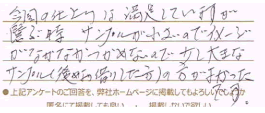 今回の仕上りは満足していますが
選ぶ時 サンプルが小さいのでイメージ
がなかなかつかめないので少し大きな
サンプル(後めお借りした方)の方がよかった
です。
●上記アンケートのご回答を、弊社ホームページに掲載してもよろしいでしょうか
匿名にて掲載しても良い ・ 掲載しないで欲しい